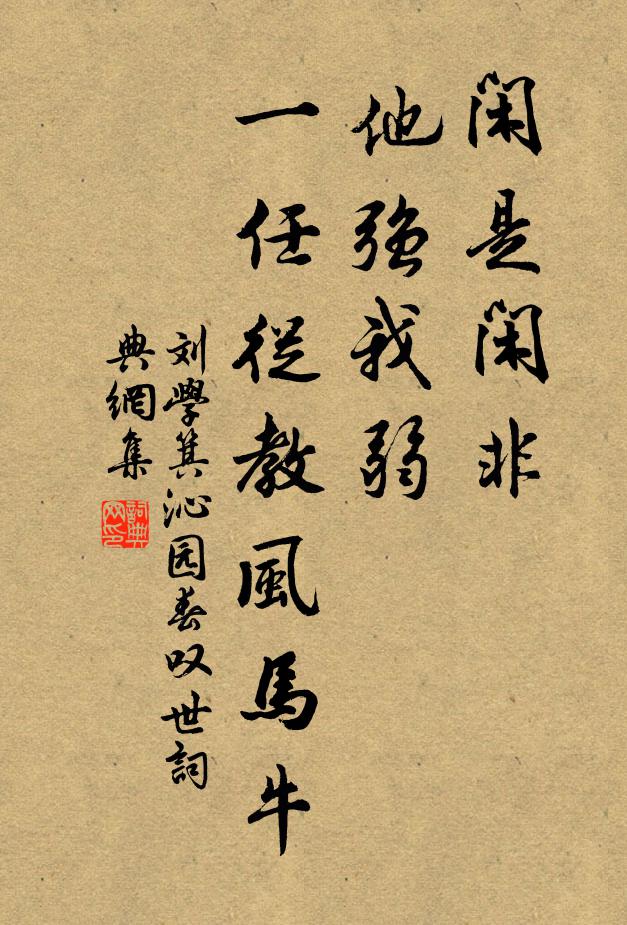 閑是閑非
他強我弱
一任從教風馬牛
刘學箕沁园春叹世詞
典網集
詞典
网印